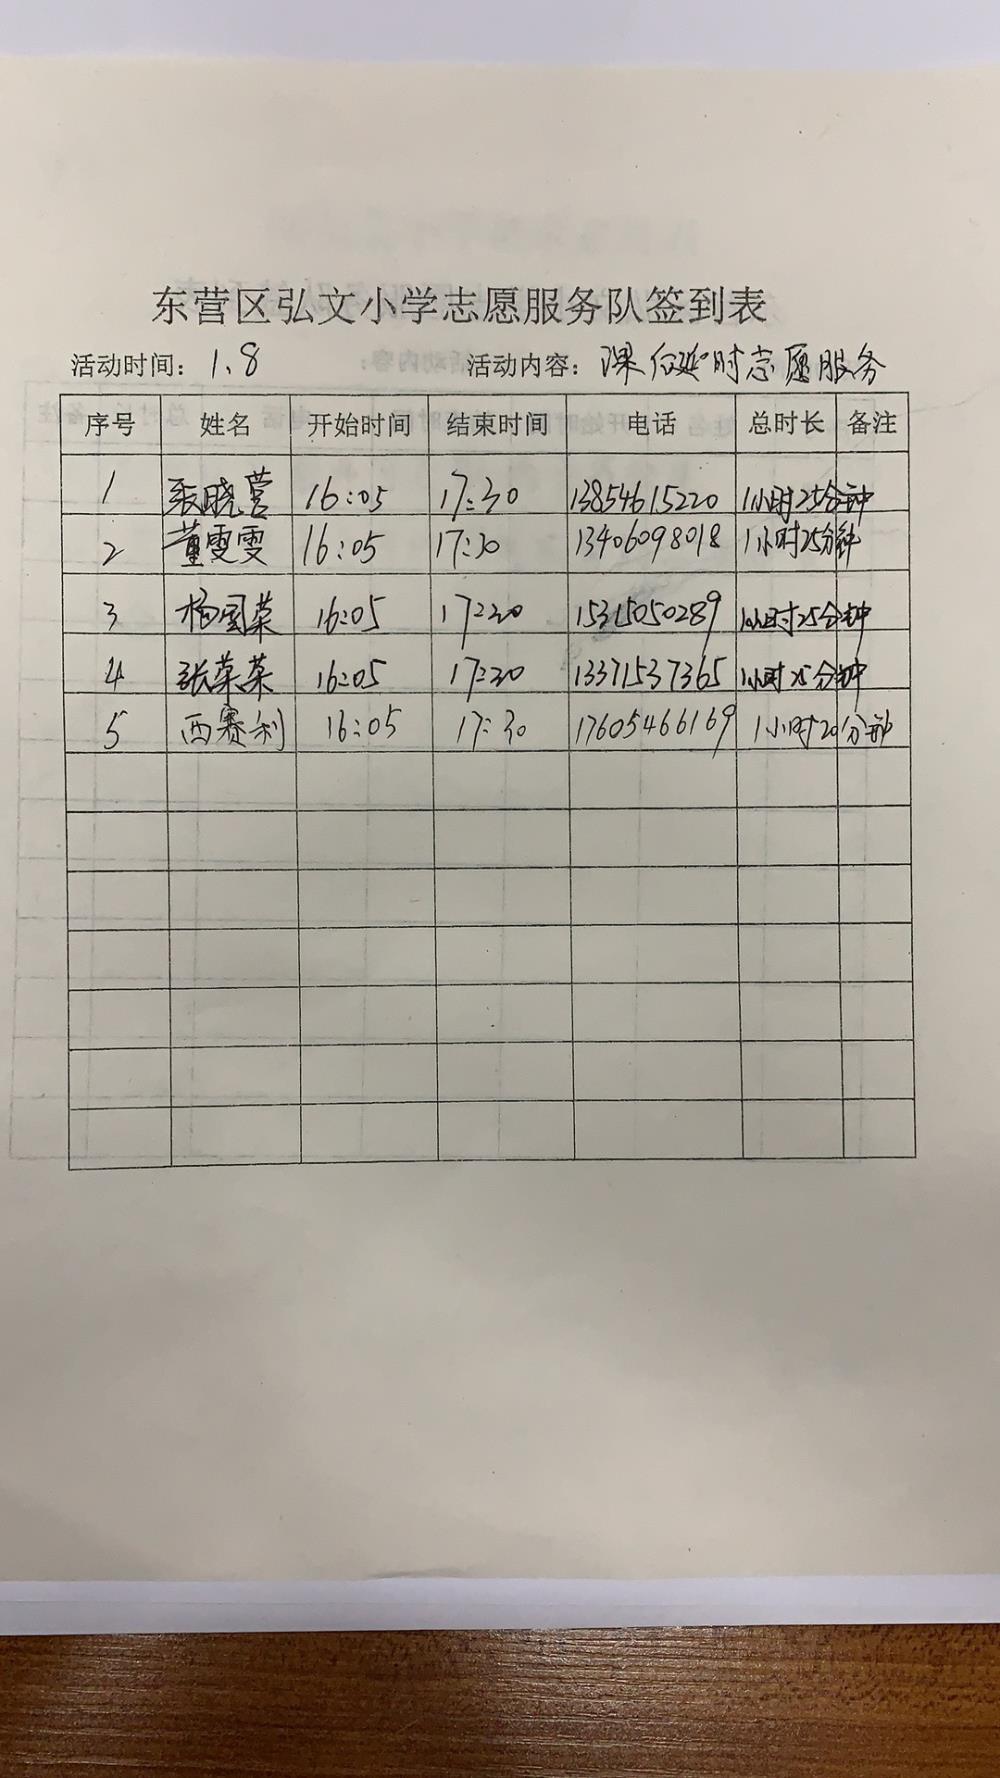 东营区弘文小学志愿服务队签到表
活动时间：1.8 活动内容：课后延时志愿服务
序号 姓名 开始时间 结束时间 电话 总时长 备注
1 张晓营 16:05 17:30 13854615220 1小时25分钟
2 董雯雯 16:05 17:30 13406098018 1小时25分钟
3 杨国菜 16:05 17:30 15315050289 1小时25分钟
4 张菜菜 16:05 17:30 13371537365 1小时25分钟
5 西赛利 16:05 17:30 17605466169 1小时20分钟